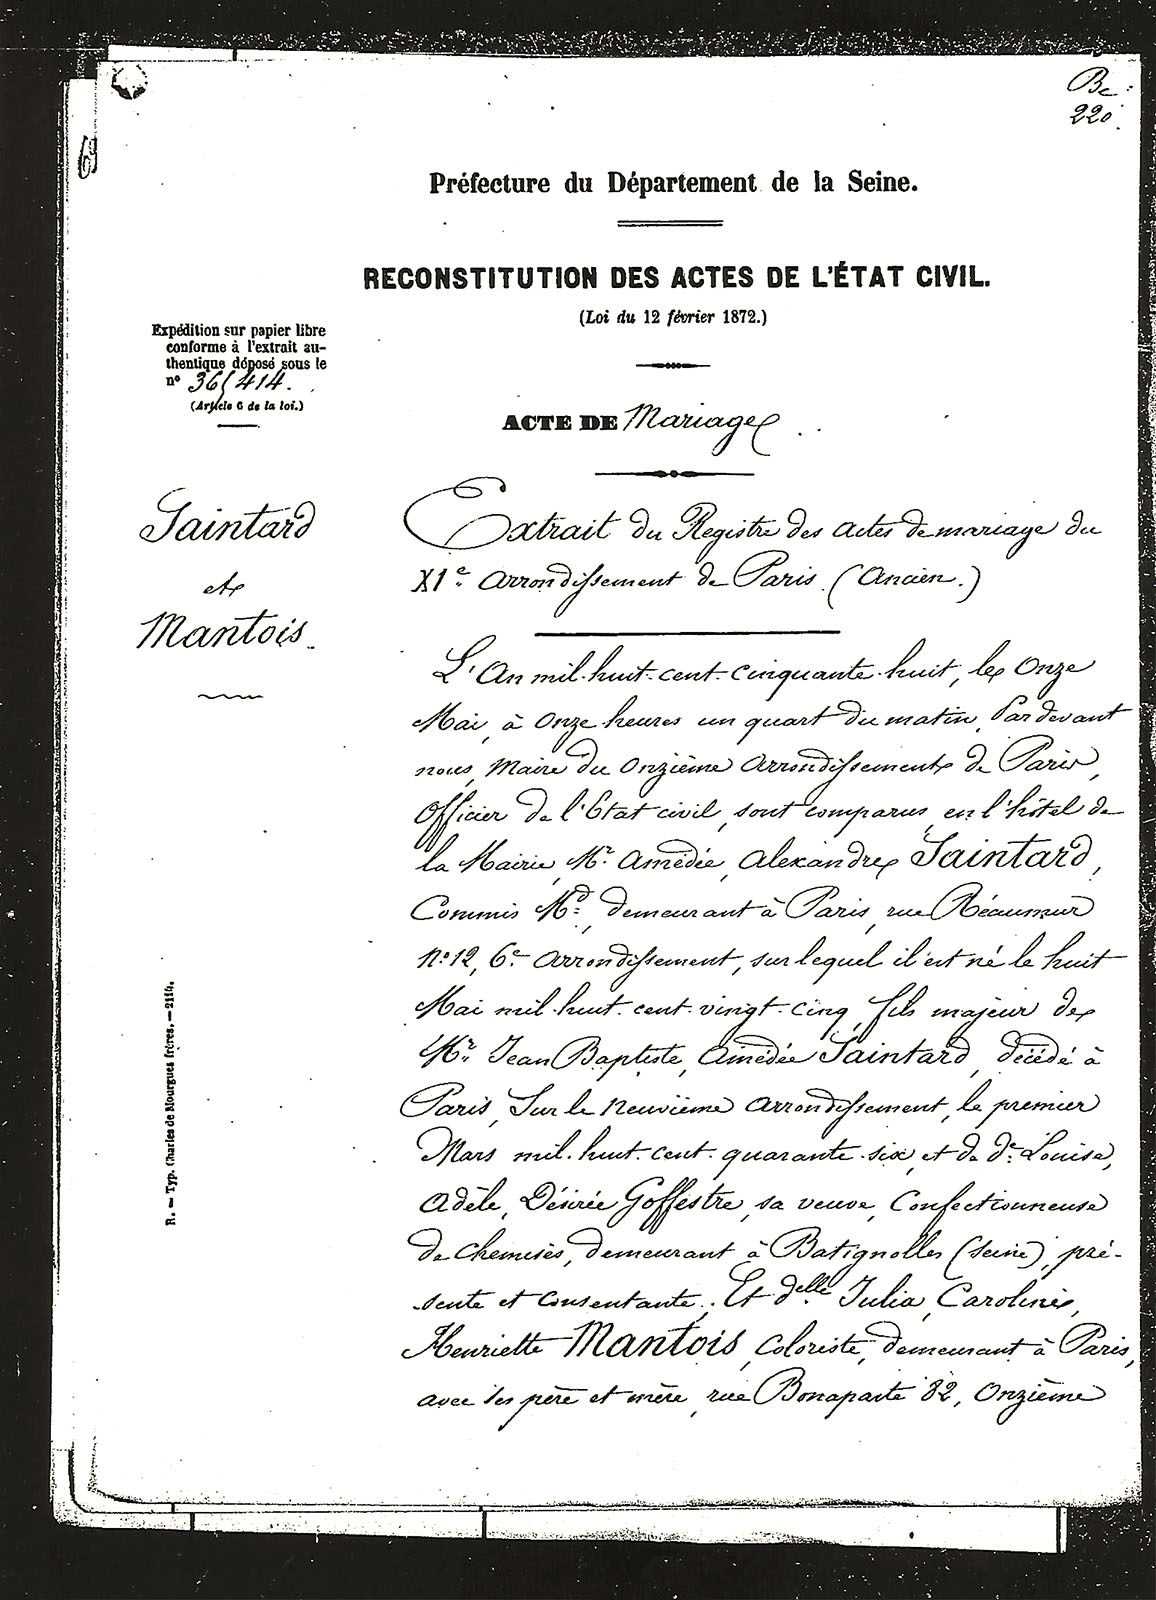 Bc.
220.
6
Préfecture du Département de la Seine.
RECONSTITUTION DES ACTES DE L'ÉTAT CIVIL.
(Loi du 12 février 1872.)
Expédition sur papier libre
conforme à l'extrait au-
thentique déposé sous le
n° 36414.
(Article 6 de la loi.)
ACTE DE Mariage
Saintard
et
Mantois
Extrait du Registre des actes de mariage du
XIe arrondissement de Paris. (ancien.)
L'an mil-huit-cent-cinquante-huit, le onze
Mai, à onze heures un quart du matin. Par devant
nous, Maire du onzième arrondissement de Paris,
officier de l'Etat civil, sont comparus en l'hôtel de
la Mairie, Mr. Amédée, Alexandre Saintard,
Commis Md., demeurant à Paris, rue Réaumur
No 12, 6e arrondissement, sur lequel il est né le huit
Mai mil-huit-cent-vingt-cinq, fils majeur de
Mr. Jean Baptiste, Amédée Saintard, décédé à
Paris, sur le neuvième arrondissement, le premier
Mars mil-huit-cent-quarante-six, et de de Louise,
Adèle, Désirée Goffestre, sa veuve, Confectionneuse
de chemises, demeurant à Batignolles (Seine), pré-
sente et consentante. Et delle Julia, Caroline,
Henriette Mantois, coloriste, demeurant à Paris,
avec ses père et mère, rue Bonaparte 82, onzième
R. — Typ. Charles de Mourgues frères. — 2114.